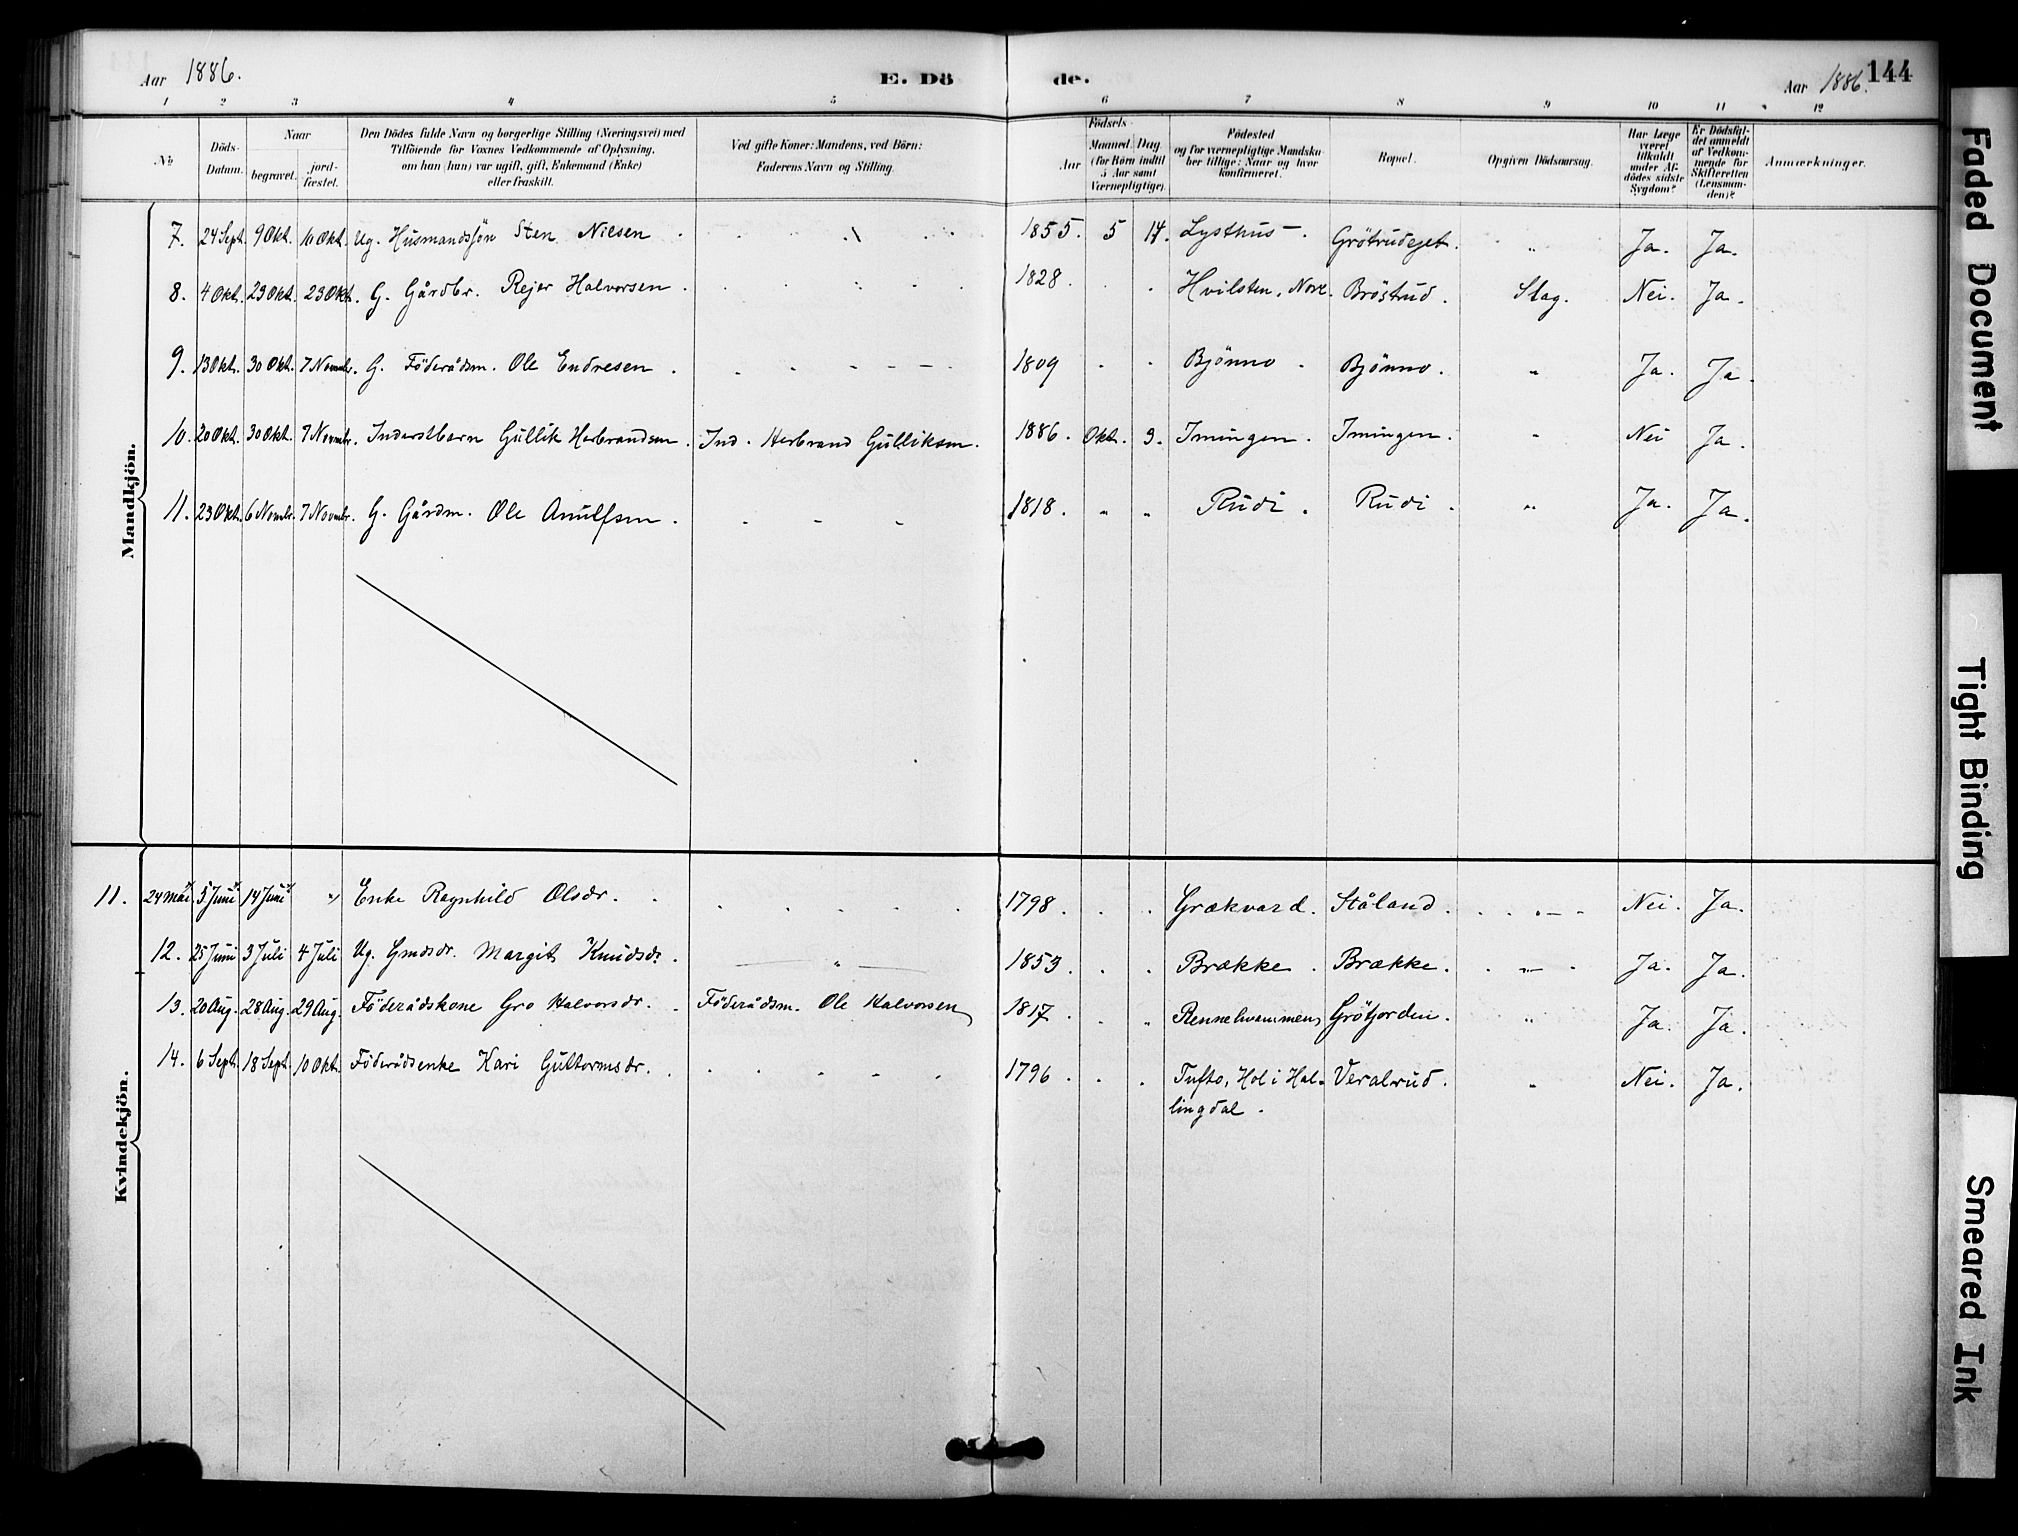 Aar 1886. E. Dö de. Aar 1886. 144
1 2 3 4 5 6 7 8 9 10 11 12
No
Döds-Datum.
Naar
begravet.
jord-fæstet.
Den Dödes fulde Navn og borgerlige Stilling (Næringsvei) med
Tilföiende for Voxnes Vedkommende af Oplysning,
om han (hun) var ugift, gift, Enkemand (Enke)
eller fraskilt.
Ved gifte Koner: Mandens, ved Börn:
Faderens Navn og Stilling.
Födsels-
Aar
Maaned. Dag
(for Börn indtil
5 Aar samt
Værnepligtige).
Födested
og for værnepligtige Mandska-
ber tillige: Naar og hvor
konfirmeret.
Bopæl.
Opgiven Dödsaarsag.
Har Læge
været
tilkaldt
under Af-
dödes sidste
Sygdom?
Er Dödsfal-
det anmeldt
af Vedkom-
mende for
Skifteretten
(Lensman-
den)?
Anmærkninger.
Mandkjön.
7. 24 Sept. 9 Okt. 10 Okt. Ug. Husmandssön Sten Nilsen . 1855. 5 14. Lysthus . Grötrudejet. " Ja. Ja.
8. 4 Okt. 23 Okt. 23 Okt. G. Gårdbr. Rejer Halvorsen . 1828 . Hvilsten, Nore. Bröstrud. Slag. Nei. Ja.
9. 13 Okt. 30 Okt. 7 Novmbr. G. Föderådsm. Ole Endresen . 1809 . Bjönno . Bjönno. " Ja. Ja.
10. 20 Okt. 30 Okt. 7 Novmbr. Inderstbarn Gullik Herbrandsen. Ind. Herbrand Gulliksen. 1886. Okt. 3. Imingen. Imingen. " Nei Ja.
11. 23 Okt. 6 Novmbr. 7 Novmbr. G. Gårdm. Ole Anulfsen . 1818. " " Rudi . Rudi . " Ja. Ja.
Kvindekjön.
11. 24 Mai 5 Juni 14 Juni " Enke Ragnhild Olsdr. 1798. Grækvard. Ståland. " Nei. Ja.
12. 25 Juni 3 Juli 4 Juli Ug. Gmdsdr. Margit Knudsdr. " 1853. Brække . Brække. " Ja. Ja.
13. 20 Aug. 28 Aug. 29 Aug. Föderådskone Gro Halvorsdr. Föderådsm. Ole Halvorsen 1817 . " Rennehvammen, Gröfjorden. " Ja. Ja.
14. 6 Sept. 18 Sept. 10 Okt. Föderådsenke Kari Guttormsdr. 1796 . Tufto, Hol i Hal- Veralrud. " Nei. Ja.
lingdal.
Faded Document
Tight Binding
Smeared Ink